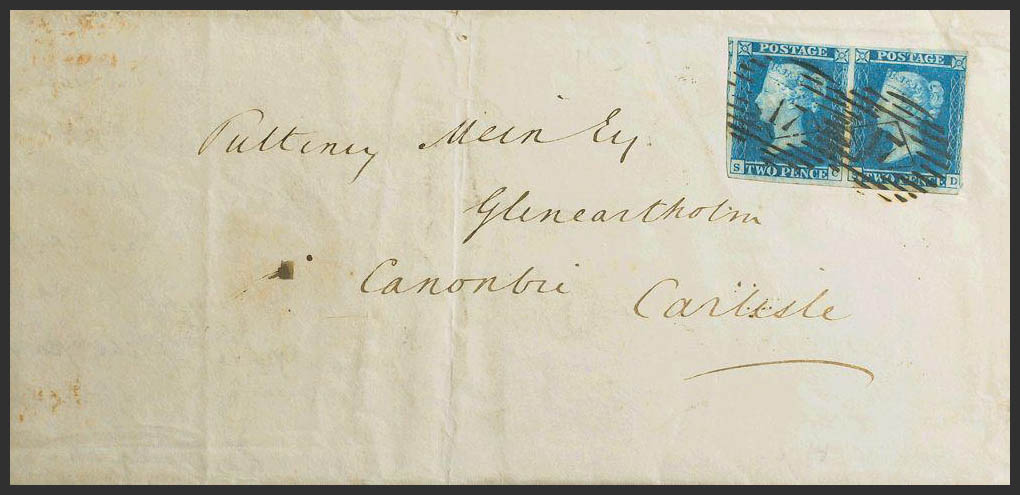 POSTAGE POSTAGE
S TWO PENCE C TWO PENCE D
Pulteney Mein Esq.
Gleneartholm
Canonbie Carlisle